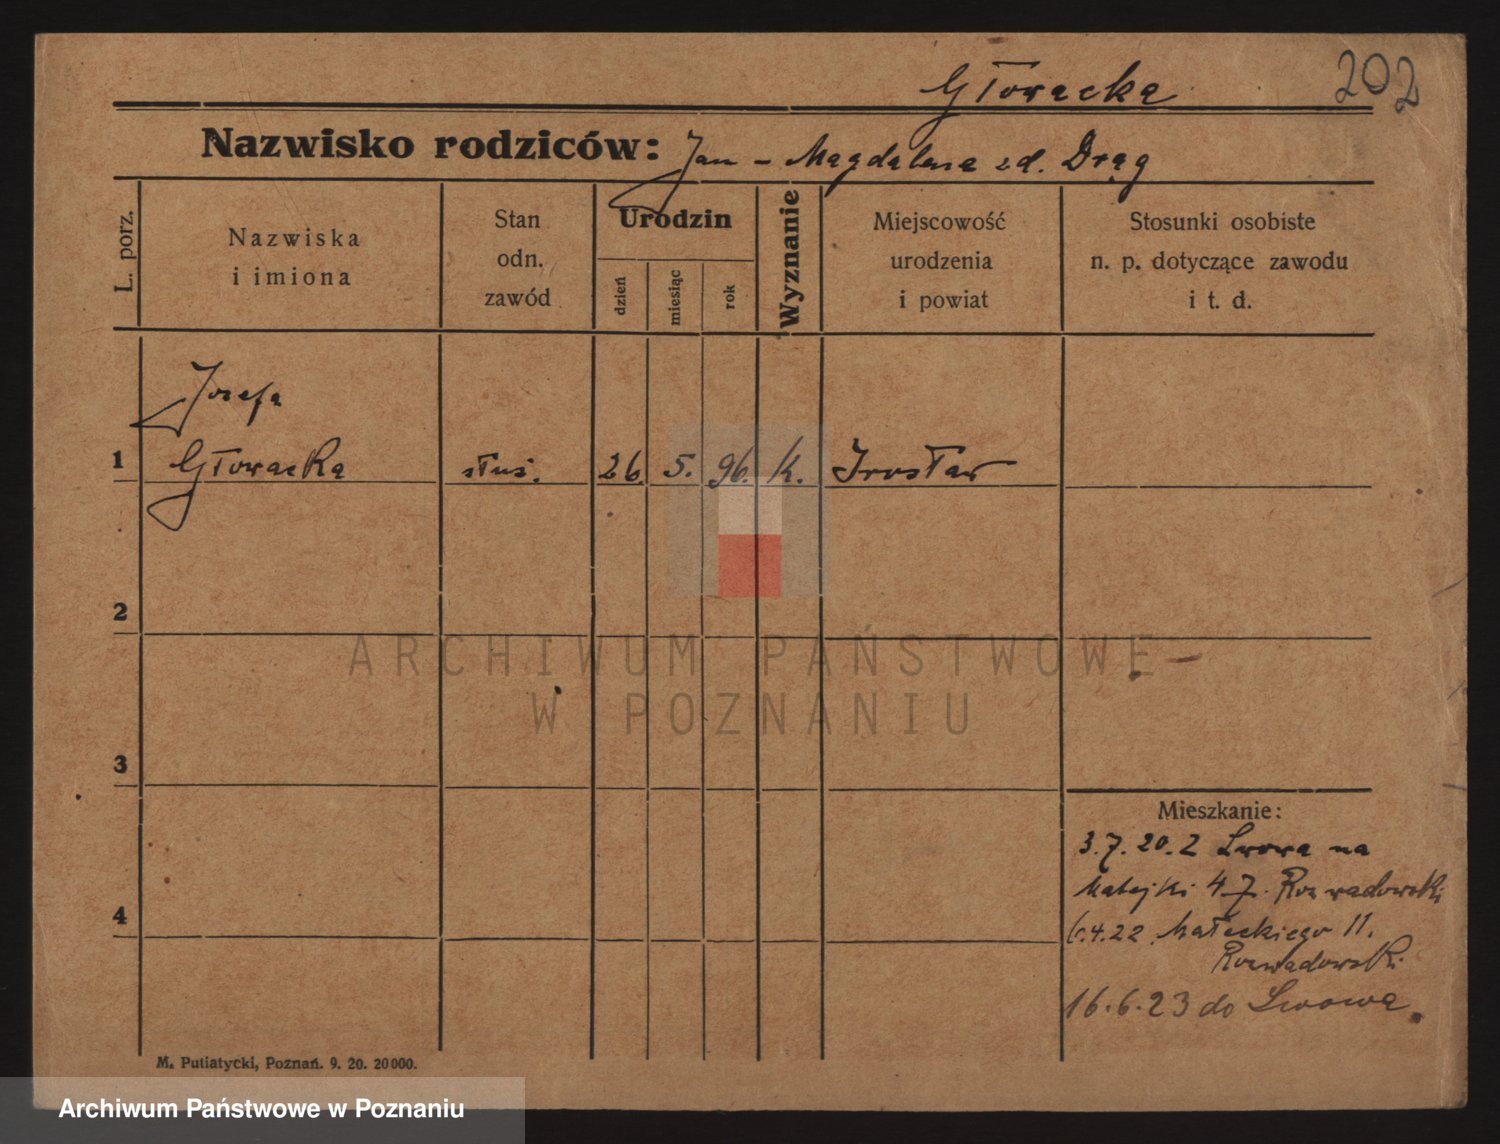 Głowacka
202
Nazwisko rodziców: Jan - Magdalena zd. Drąg
L. porz.
Nazwiska
i imiona
Stan
odn.
zawód
Urodzin
dzień
miesiąc
rok
Wyznanie
Miejscowość
urodzenia
i powiat
Stosunki osobiste
n. p. dotyczące zawodu
i t. d.
Józefa
1 Głowacka służ. 26. 5. 96. K. Jrosław
2
ARCHIWUM PAŃSTWOWE
W POZNANIU
3
Mieszkanie:
3.7.20. Z Lwowa na
Matejki 47. Rozwadowski
4
4.22. Małeckiego 11.
Rozwadowski
16.6.23 do Lwowa.
M. Putiatycki, Poznań. 9. 20. 20000.
Archiwum Państwowe w Poznaniu